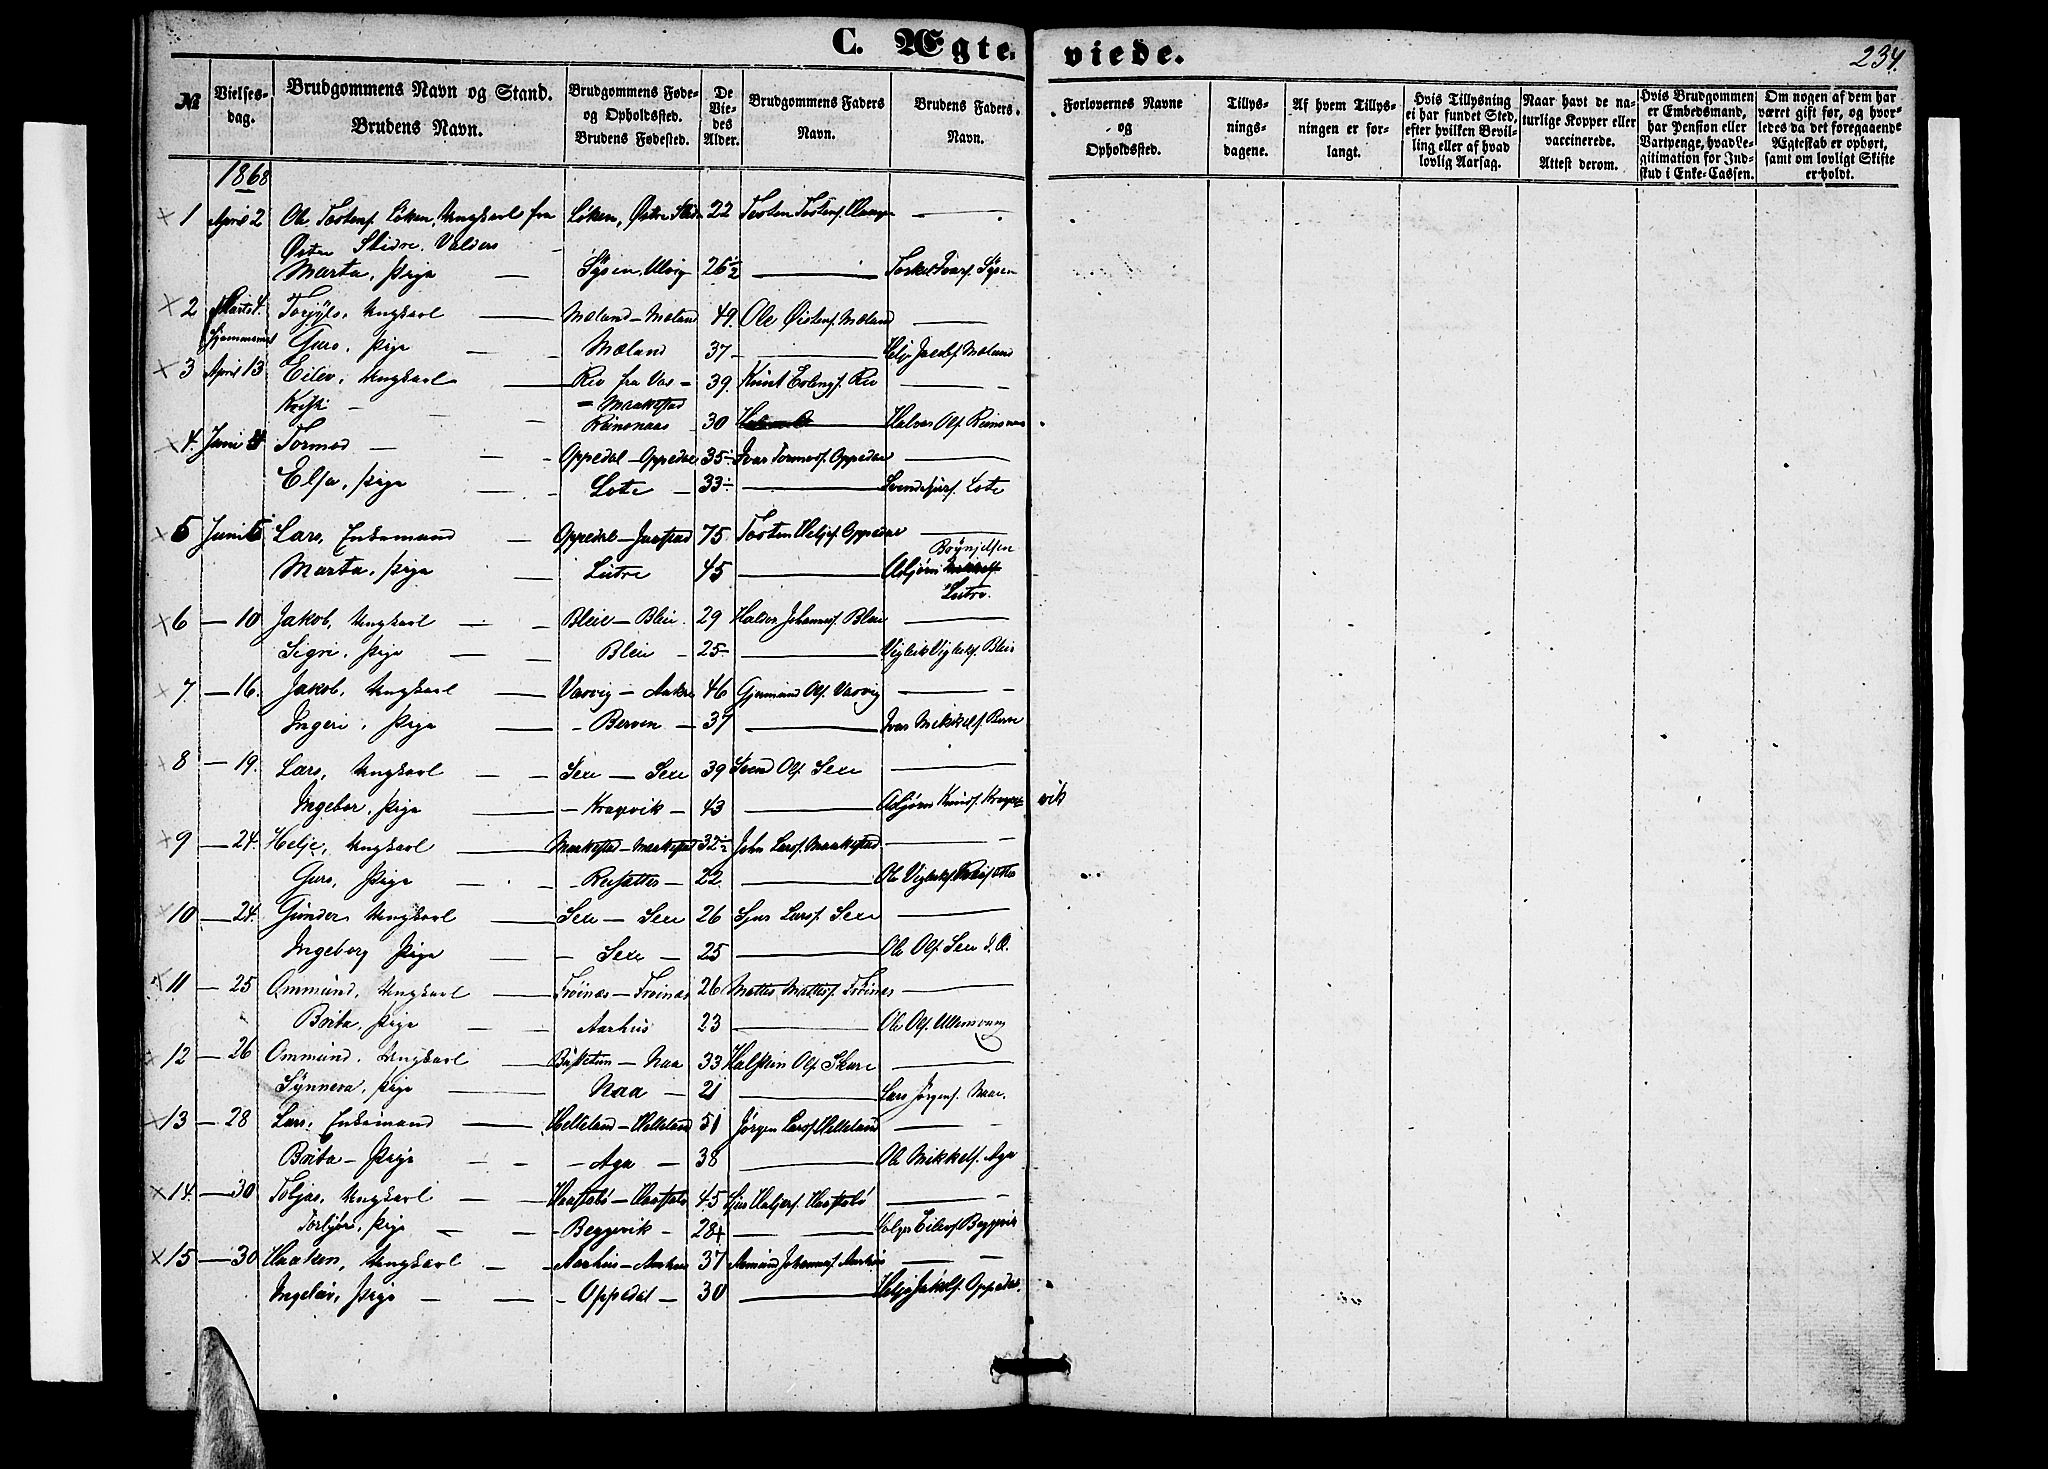 C. Ægte-
viede.
234.
№
Vielses-
dag.
Brudgommens Navn og Stand.
Brudens Navn.
Brudgommens Føde-
og Opholdssted.
Brudens Fødested.
De
Vie-
des
Alder.
Brudgommens Faders
Navn.
Brudens Faders
Navn.
Forlovernes Navne
og
Opholdssted.
Tillys-
nings-
dagene.
Af hvem Tillys-
ningen er for-
langt.
Hvis Tillysning
ei har fundet Sted,
efter hvilken Bevil-
ling eller af hvad
lovlig Aarsag.
Naar havt de na-
turlige Kopper eller
vaccinerede.
Attest derom.
Hvis Brudgommen
er Embedsmand,
har Pension eller
Vartpenge, hvad Le-
gitimation for Ind-
skud i Enke-Cassen.
Om nogen af dem har
været gift før, og hvor-
ledes da det foregaaende
Ægteskab er ophørt,
samt om lovligt Skifte
er holdt.
1868
× 1 April 2 Ole Tostens. Løken, Ungkarl fra Løken, Østre Slidre 22 Tosten Tostens. —
Østre Slidre. Valders
Marta, Pige — Sysen, Ulvig 26½ — Torkel Ivars. Sysen
× 2 Marts 4. Torjyls, Ungkarl — Mæland – Mæland 49. Ole Øistens. Mæland —
Hjemmeviet Guro, Pige — Mæland 37 — Helje Jacobs. Mæland
× 3 April 13 Eilev, Ungkarl — Rev fra Vos – 39. Knut Erlings. Rev —
– Maakestad
Kristi — Reinsnaas 30 — Halvor Ols. Reinsnos
× 4. Juni 4 Tormod — Oppedal – Oppedal 35 Ivar Tormods. Oppedal —
Elsa, Pige — Lote – 33 — Svend Sjurs. Lote
× 5 Juni 5 Lars, Enkemand — Oppedal – Jaastad 75 Tosten Heljes. Oppedal —
Brynjelsen
Marta, Pige — Lutro 45 — Asbjørn
Lutro.
× 6 — 10 Jakob, Ungkarl — Bleie – Bleie 29 Haldor Johannes. Bleie —
Segri, Pige — Bleie – 25 — Vigleik Vigleiks. Bleie
× 7. — 16. Jakob, Ungkarl — Varvig – Aakre 46 Gjermund Ols. Varvig —
Ingeri, Pige — Berven – 37 — Ivar Mikkels. Berve
8 — 19. Lars, Ungkarl — Sexe – Sexe 39 Svend Ols. Sexe —
Ingebor, Pige — Kraxvik – 43 — Asbjørn Knuds. Kraxvik
× 9 — 24. Helje, Ungkarl — Maakestad – Maakestad 32½ John Lars. Maakestad —
Guro, Pige — Reisæter – 22 — Ole Vigleiks. Reisæter
10 — 24. Gunder Ungkarl — Sexe – Sexe 26 Sjur Lars. Sexe —
Ingeborg Pige — Sexe – 25 — Ole Ols. Sexe
11 — 25 Ommund, Ungkarl — Frøinæs – Frøinæs 26 Mattes Mattes. Frøinæs —
Brita, Pige — Aarhus 23 — Ole Ols. Ullensvang
12 — 26 Ommund, Ungkarl — – Naa 33 Halstein Ols. Skare —
Synneva, Pige — Naa – 21 — Lars Jørgens. Naae.
× 13 — 28 Lars, Enkemand — Helleland – Helleland 51 Jørgen Lars. Helleland —
Brita – Pige — Aga – 38 — Ole Mikkels. Aga
× 14. — 30 Toljas, Ungkarl — Haastabø – Haastabø 45 Sjur Haljors. Haastabø —
Torbjør, Pige — Beggevik – 28 — Eilevs. Beggevik
× 15 — 30 Haaken, Ungkarl — Aarhus – Aarhus 37 Amund Johannes. Aarhus —
Ingelav, Pige — Oppedal – 30 — Helje Jakobs. Oppedal.